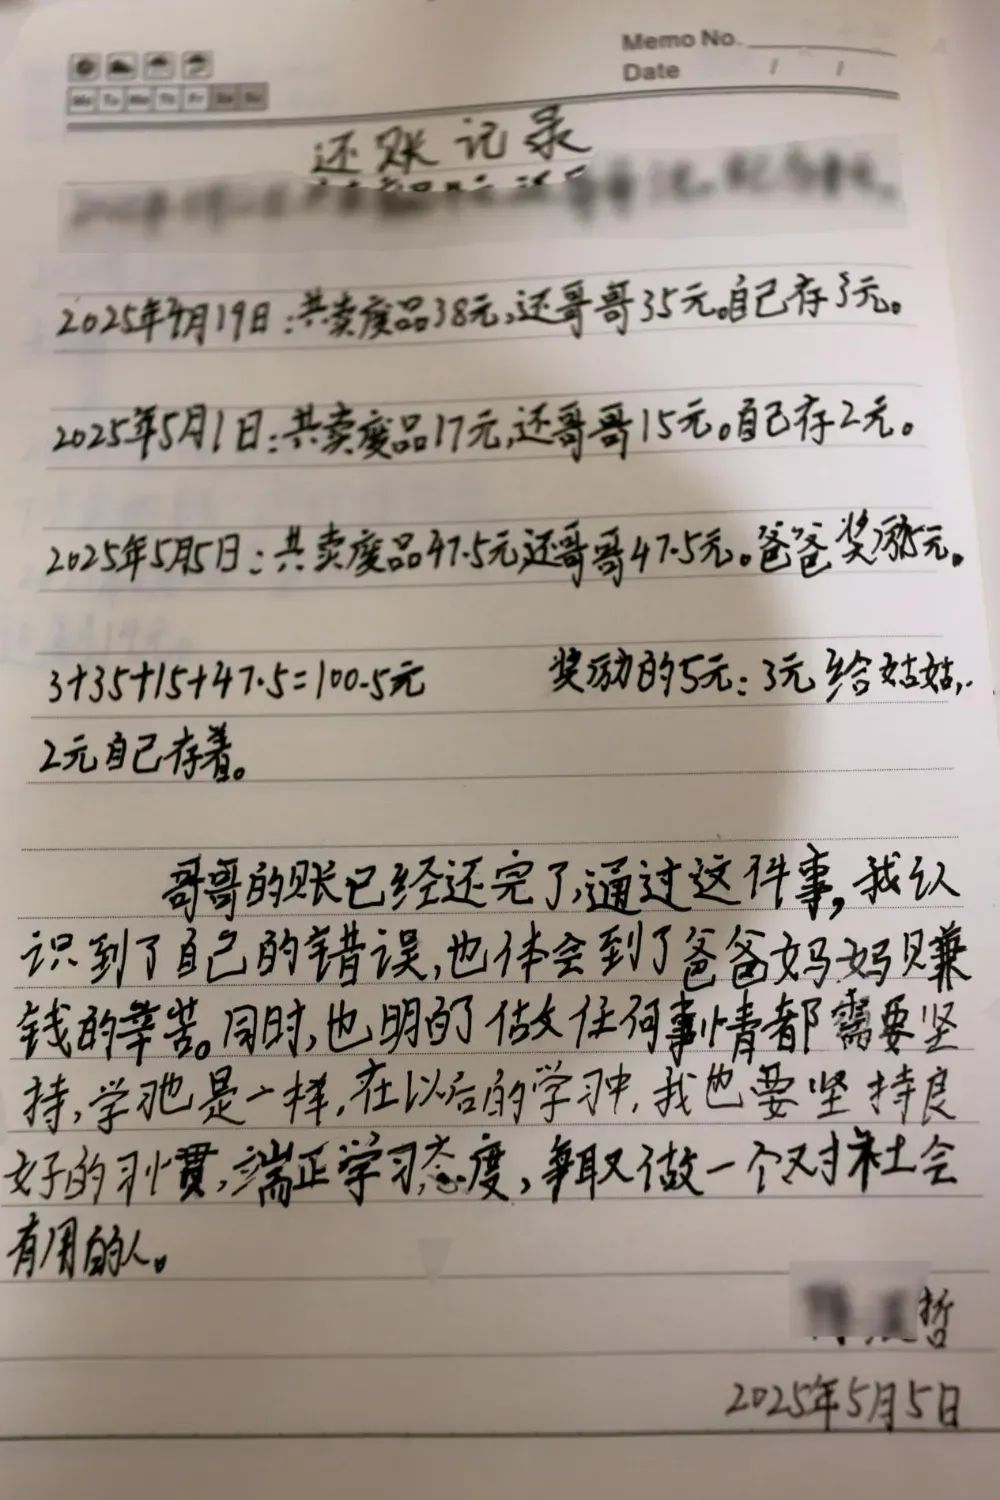 Memo No.
Date / /
Mo Tu We Th Fr Sa Su
还账记录
2025年4月19日:共卖废品38元,还哥哥35元。自己存3元。
2025年5月1日:共卖废品17元,还哥哥15元。自己存2元。
2025年5月5日:共卖废品47.5元还哥哥47.5元。爸爸奖励5元。
3+35+15+47.5=100.5元 奖励的5元:3元给姑姑,
2元自己存着。
哥哥的账已经还完了,通过这件事,我认
识到了自己的错误,也体会到了爸爸妈妈赚
钱的辛苦。同时,也明白了做任何事情都需要坚
持,学习也是一样,在以后的学习中,我也要坚持良
好的习惯,端正学习态度,争取做一个对社会
有用的人。
哲
2025年5月5日